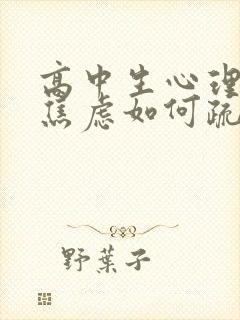 高中生心理
焦虑如何疏
野葉子